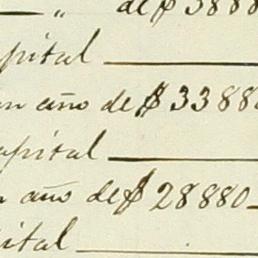 — „ de $ 3888
pital
un año de $ 3388
apital
n año de $ 28880
ital